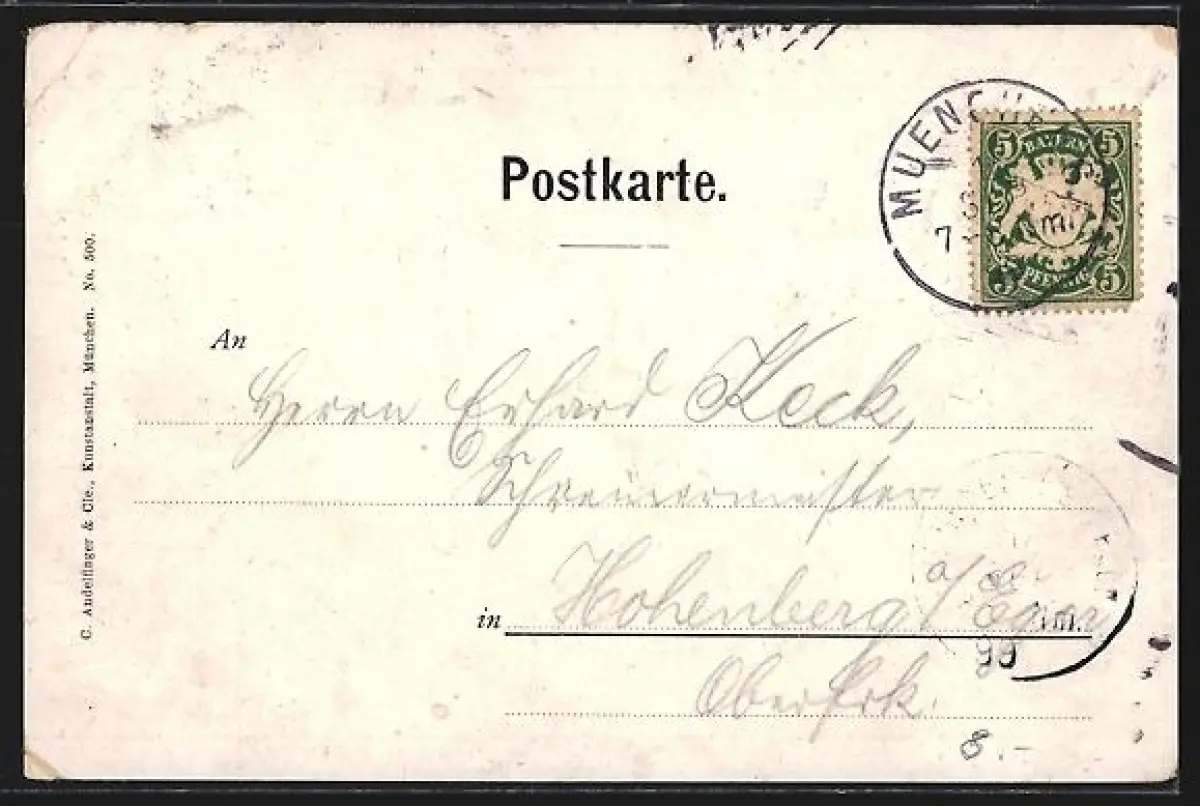 Postkarte.
MUENCHEN
7
5 BAYERN 5
5 PFENNIG 5
An
Herrn Erhard Keck,
Schreinermeister
in Hohenberg a/Eger
Oberfrk.
99
8.-
C. Andelfinger & Cie., Kunstanstalt, München. No. 500.